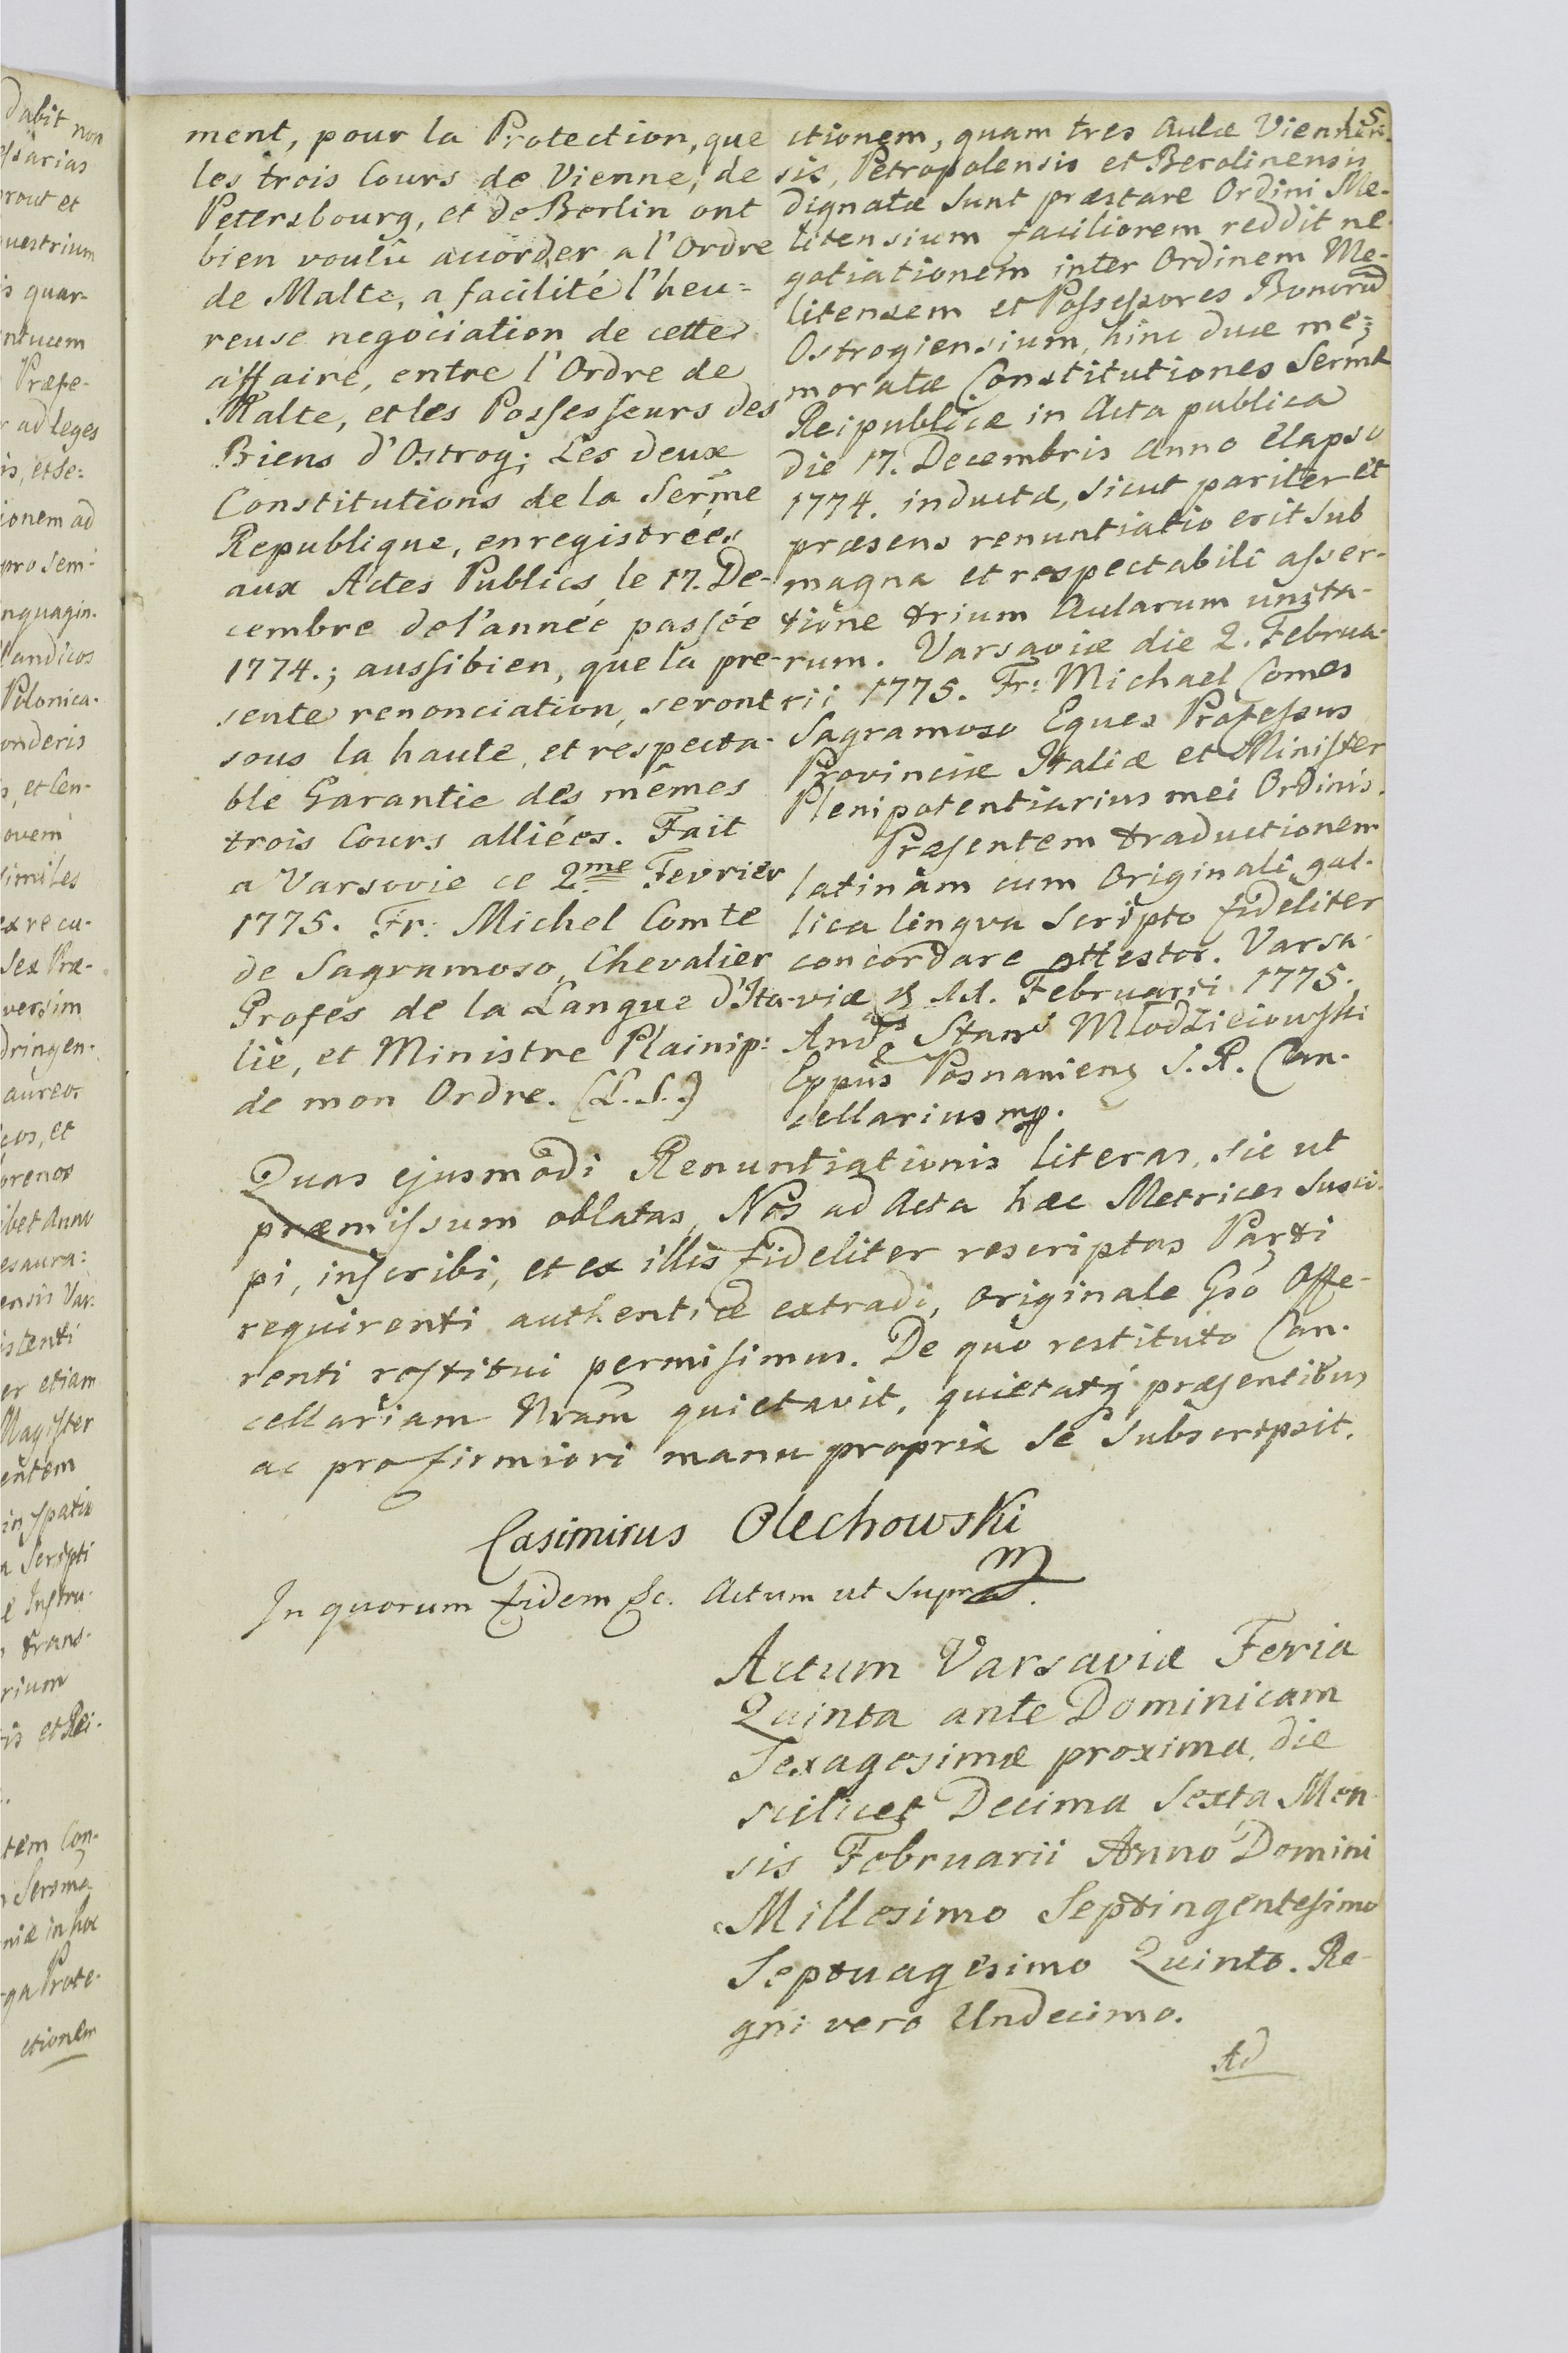 15.
ment, pour la Protection, que
les trois Cours de Vienne, de
Petersbourg, et de Berlin ont
bien voulu accorder a l'Ordre
de Malte, a facilité l'heu=
reuse negociation de cette
affaire, entre l'Ordre de
Malte, et les Possesseurs des
Biens d'Ostrog; Les deux
Constitutions de la Serme
Republique, enregistrées
aux Actes Publics, le 17. De-
cembre de l'année passée
1774.; aussibien, que la pre-
sente renonciation, seront
sous la haute, et respecta-
ble Garantie des mêmes
trois Cours alliées. Fait
a Varsovie ce 2me Fevrier
1775. Fr: Michel Comte
de Sagramoso, Chevalier
Profes de la Langue d'Ita-
lie, et Ministre Plainip:
de mon Ordre. (L.S.)
ctionem, quam tres Aulæ Viennen-
sis, Petropolensis et Berolinensis
dignatæ sunt præstare Ordini Me-
litensium faciliorem reddit ne-
gotiationem inter Ordinem Me-
litensem et Possessores Bonorū
Ostrogiensium, hinc duæ me=
moratæ Constitutiones Sermæ
Reipublicæ in Acta publica
die 17. Decembris Anno elapso
1774. inductæ, sicut pariter et
præsens renuntiatio erit sub
magna et respectabili asser-
tione trium Aularum unita-
rum. Varsaviæ die 2. Februa-
rii 1775. Fr: Michael Comes
Sagramoso Eques Professus
Provinciæ Italiæ et Minister
Plenipotentiarius mei Ordinis.
Præsentem traductionem
latinam cum Originali gal-
lica lingva scripto fideliter
concordare attestor. Varsa-
viæ Februarii 1775.
Ands Stans Młodzieiowski
Eppus Posnaniens S. R. Can-
cellarius mp.
Quas ejusmodi Renuntiationis literas, sic ut
præmissum oblatas, Nos ad Acta hæc Metrices susci-
pi, inscribi, et ex illis fideliter rescriptas Parti
requirenti authenticè extradi, originale Gso Offe-
renti restitui permisimus. De quo restituto Can-
cellariam Nram quietavit, quietatq præsentibus
ac pro firmiori manu propria se subscripsit.
Casimirus Olechowski
m
In quorum fidem &c. Actum ut supra.
Actum Varsaviæ Feria
Quinta ante Dominicam
Sexagesimæ proxima, die
scilicet Decima Sexta Men-
sis Februarii Anno Domini
Millesimo Septingentesimo
Septuagesimo Quinto. Re-
gni vero Undecimo.
Ad